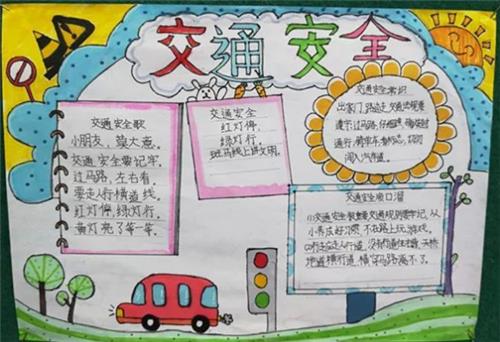 交通安全
交通安全歌
小朋友，莫大意。
交通安全要记牢。
过马路，左右看。
要走人行横道线。
红灯停，绿灯行。
黄灯亮了等一等。
交通安全
红灯停，
绿灯行，
斑马线上讲文明。
交通安全常识
出家门，路边走，交通法规要
遵守；过马路，仔细看，确保安全
通行，骑单车，
闯入汽车道。
交通安全顺口溜
小交通安全很重要，交通规则要牢记，从
小养成好习惯，不在路上玩游戏。
行走应走人行道，没有行道往边靠，天桥
地道横行道，横穿马路离不了。